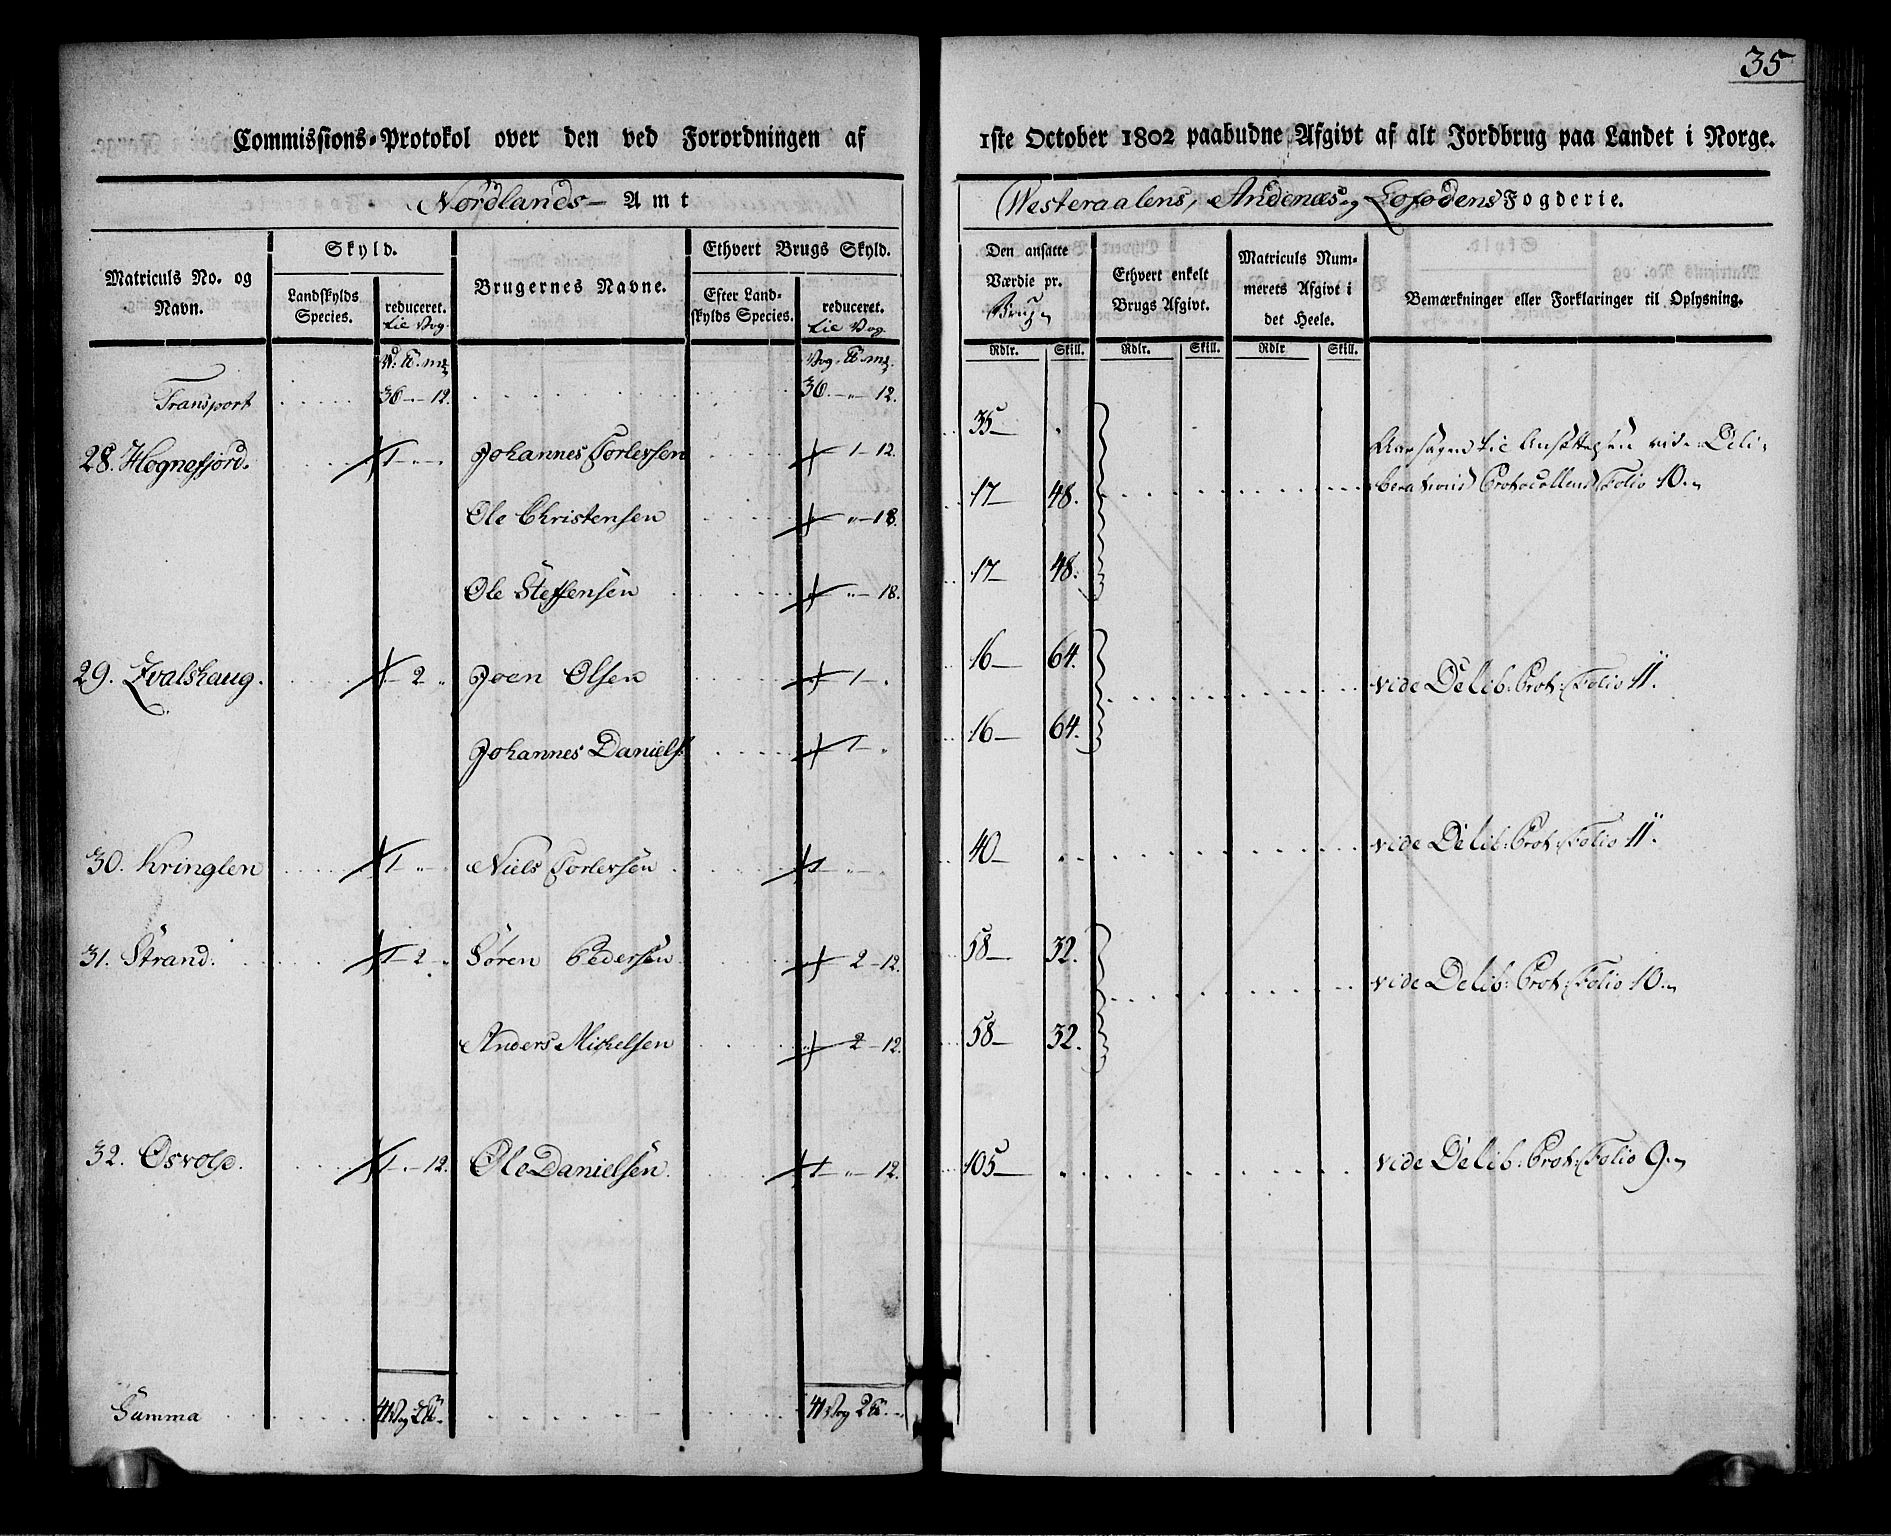 35
Commissions-Protokol over den ved Forordningen af 1ste October 1802 paabudne Afgivt af alt Jordbrug paa Landet i Norge.
Nordlands Amt
Westeraalens, Andenæs og Lofodens Fogderie.
Matriculs No. og Navn.
Skyld.
Landskylds Species.
reduceret. til Vog.
Brugernes Navne.
Ethvert Brugs Skyld.
Efter Landskylds Species.
reduceret. til Vog.
Den ansatte Værdie pr. Brug
Ethvert enkelt Brugs Afgivt.
Matriculs Nummerets Afgivt i det Heele.
Bemærkninger eller Forklaringer til Oplysning.
Rdlr. Skill. Rdlr. Skill. Rdlr Skill.
Transport 36 - „ - 12. 36. - „ - 12.
28. Hognefjord. 1 - „ - Johannes Torlevsen 1 - 12. 35 - .
Aarsagen til Ansættelsen vide Deli-
berations Protocollens Folio 10.
Ole Christensen „ - 18. 17 - 48.
Ole Steffensen „ - 18. 17 - 48.
29. Kvalshaug. - 2 „ Joen Olsen 1 - „ 16 - 64. vide Delib: Prot: Folio 11.
Johannes Daniels. 1 - „ 16 - 64.
30. Kringlen 1 - „ - Niels Torlevsen 1 - „ - 40 - . vide Delib: Prot: Folio 11.
31. Strand. 1 - 2 - Sören Pedersen 2 - 12. 58 - 32. vide Delib: Prot: Folio 10.
Anders Michelsen 2 - 12. 58 - 32.
32. Osvold. 1 „ - 12. Ole Danielsen 1 - „ - 12. 105 - . vide Delib: Prot: Folio 9.
Summa 41 Vog 2 41 Vog 2